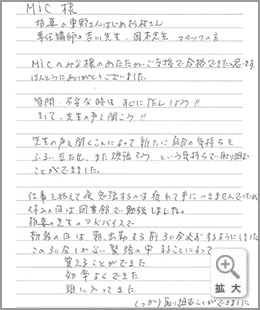 MIC 様
指導の東野さんはじめ杉村さん
専任講師の吉川先生、岡本先生 スタッフの方
MICのみな様のあたたかいご支援で合格できた思います。
ほんとうにありがとうございました。
質問・不安な時は すぐにTELしよう!!
そして、先生の声を聞こう!!
先生の声を聞くことによって新たに自分の気持ちを
ふるい立たせ、また頑張ろう という気持ちで取り組む
ことができました。
仕事を終えて夜勉強するのは疲れて手につきませんでしたが
休みの日は図書館で勉強しました。
指導の先生のアドバイスで
勤務の日は朝、出勤する前30分早おきするようにしました
この30分しかない緊張の中することによって
覚えることができた
効率よくできた
頭に入ってきた
しっかり取り組むことができました
拡大